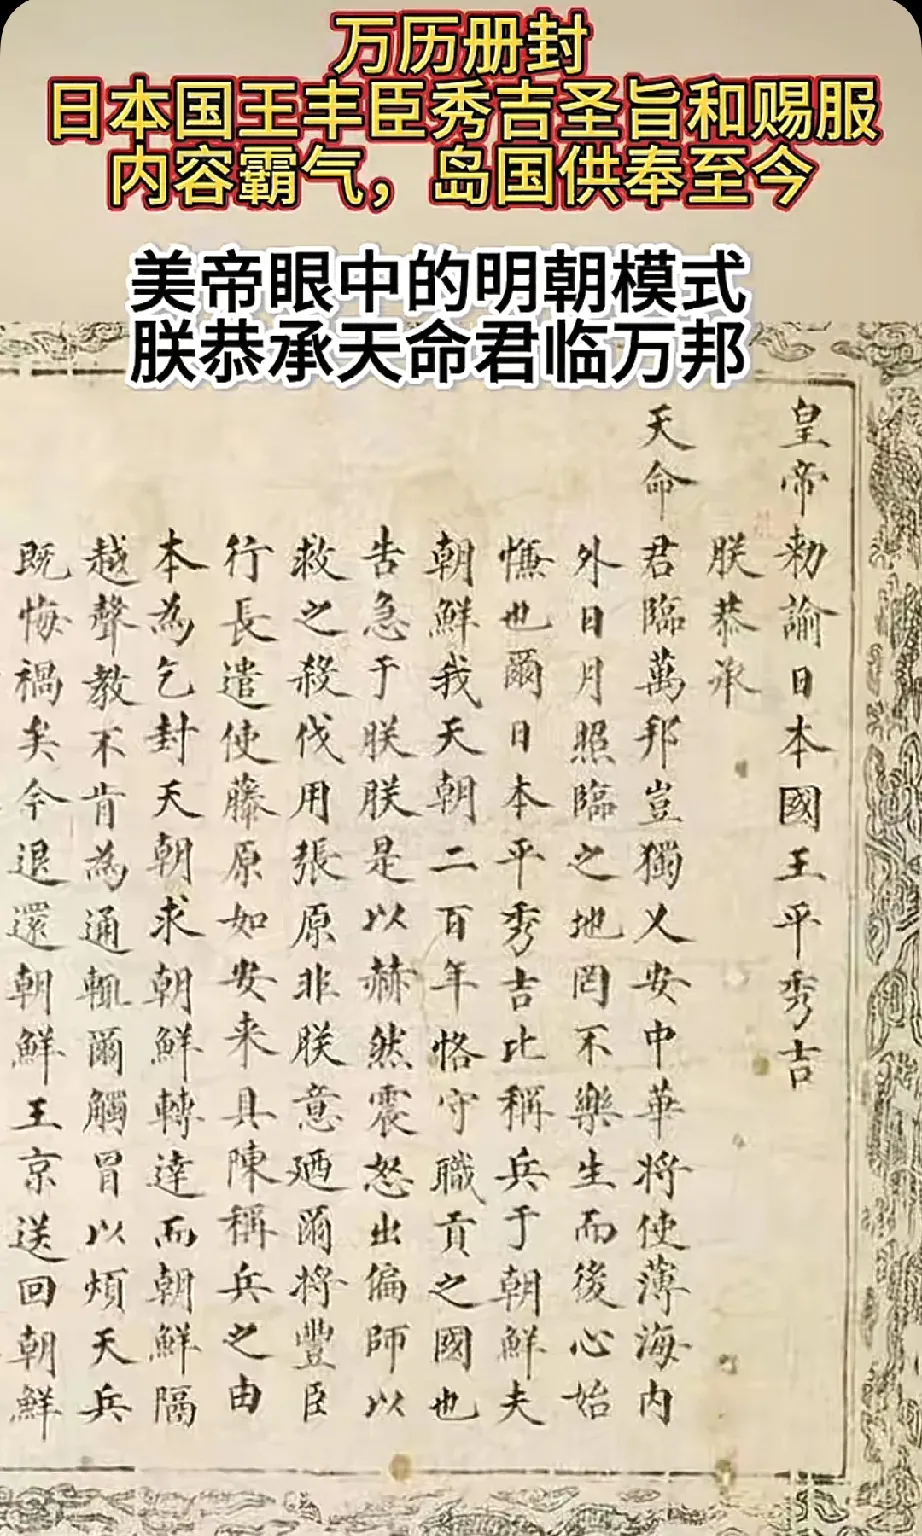 万历册封
日本国王丰臣秀吉圣旨和赐服
内容霸气，岛国供奉至今
美帝眼中的明朝模式
朕恭承天命君临万邦
皇帝勅諭日本國王平秀吉
朕恭承
天命君臨萬邦豈獨乂安中華将使薄海内
外日月照臨之地罔不樂生而後心始
慊也爾日本平秀吉比稱兵于朝鮮夫
朝鮮我天朝二百年恪守職貢之國也
告急于朕朕是以赫然震怒出偏師以
救之殺伐用張原非朕意廼爾将豐臣
行長遣使藤原如安来具陳稱兵之由
本為乞封天朝求朝鮮轉達而朝鮮隔
越聲教不肯為通輒爾觸冒以煩天兵
既悔禍矣今退還朝鮮王京送回朝鮮